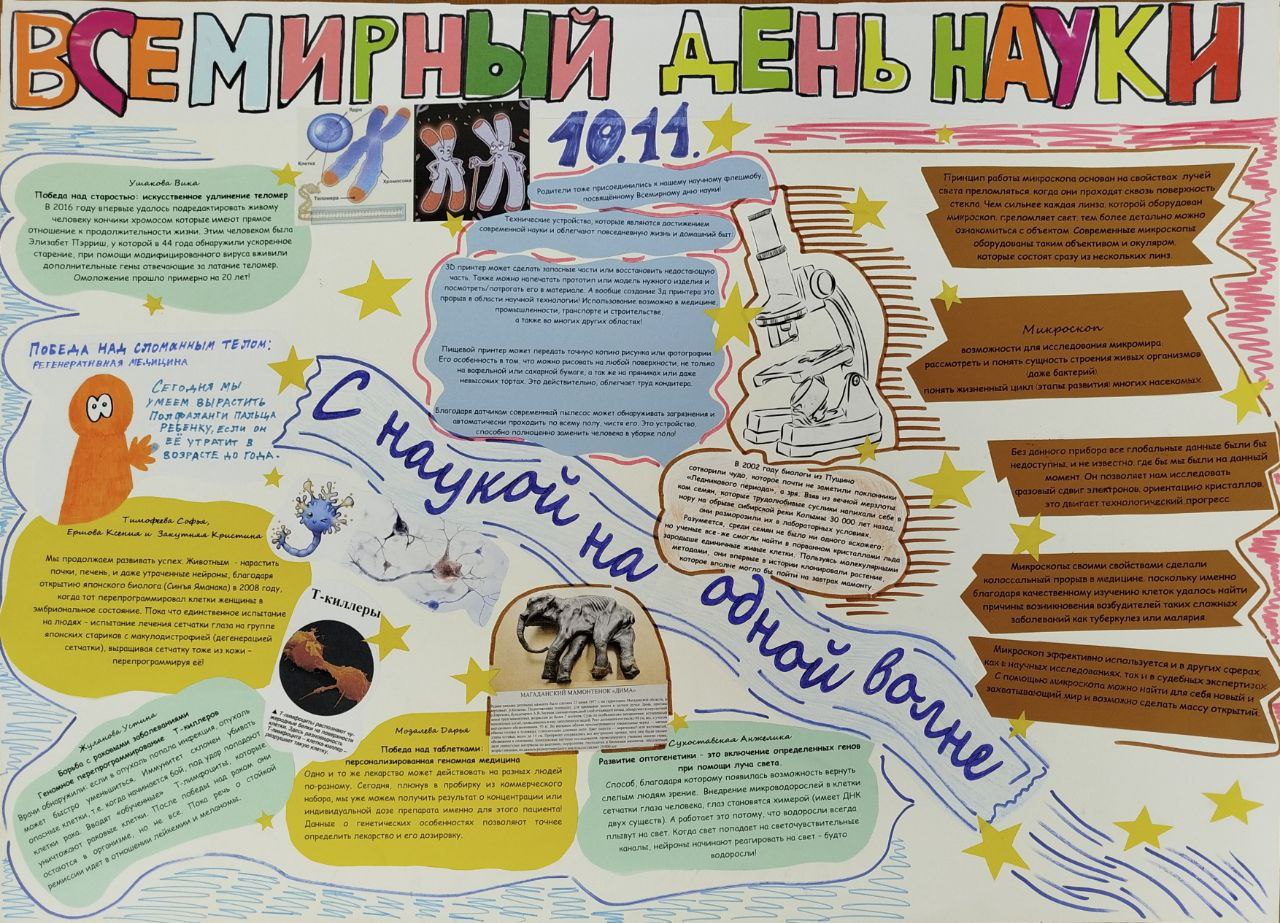 ВСЕМИРНЫЙ ДЕНЬ НАУКИ
10.11.
Ядро
Клетка
Хромосома
Теломера
Ушакова Вика
Победа над старостью: искусственное удлинение теломер
В 2016 году впервые удалось подредактировать живому
человеку кончики хромосом которые имеют прямое
отношение к продолжительности жизни. Этим человеком была
Элизабет Пэрриш, у которой в 44 года обнаружили ускоренное
старение, при помощи модифицированного вируса вживили
дополнительные гены отвечающие за латание теломер.
Омоложение прошло примерно на 20 лет!
ПОБЕДА НАД СЛОМАННЫМ ТЕЛОМ:
РЕГЕНЕРАТИВНАЯ МЕДИЦИНА
СЕГОДНЯ МЫ
УМЕЕМ ВЫРАСТИТЬ
ПОЛФАЛАНГИ ПАЛЬЦА
РЕБЕНКУ, ЕСЛИ ОН
ЕЁ УТРАТИТ В
ВОЗРАСТЕ ДО ГОДА.
Тимофеева Софья,
Ершова Ксения и Закутняя Кристина
Мы продолжаем развивать успех. Животным - нарастить
почки, печень, и даже утраченные нейроны, благодаря
открытию японского биолога (Синъя Яманака) в 2008 году,
когда тот перепрограммировал клетки женщины в
эмбриональное состояние. Пока что единственное испытание
на людях - испытание лечения сетчатки глаза на группе
японских стариков с макулодистрофией (дегенерацией
сетчатки), выращивая сетчатку тоже из кожи -
перепрограммируя её!
Т-киллеры
▲ Т-лимфоциты распознают чу-
жеродные белки на поверхности
клетки. Здесь разновидность
Т-лимфоцита - клетка-киллер -
разрушает такую клетку.
Жуланова Устина
Борьба с раковыми заболеваниями
Геномное перепрограммирование Т-киллеров
Врачи обнаружили: если в опухоль попала инфекция, опухоль
может быстро уменьшиться. Иммунитет склонен убивать
опасные клетки, т.е. когда начинается бой, под удар попадают
клетки рака. Вводят «обученные» Т-лимфоциты, которые
уничтожают раковые клетки. После победы над раком они
остаются в организме, но не все. Пока речь о стойкой
ремиссии идет в отношении лейкемии и меланомы.
Мозалева Дарья
Победа над таблетками:
персонализированная геномная медицина
Одно и то же лекарство может действовать на разных людей
по-разному. Сегодня, плюнув в пробирку из коммерческого
набора, мы уже можем получить результат о концентрации или
индивидуальной дозе препарата именно для этого пациента!
Данные о генетических особенностях позволяют точнее
определить лекарство и его дозировку.
Родители тоже присоединились к нашему научному флешмобу,
посвящённому Всемирному дню науки!
Технические устройство, которые являются достижением
современной науки и облегчают повседневную жизнь и домашний быт:
3D принтер может сделать запасные части или восстановить недостающую
часть. Также можно напечатать прототип или модель нужного изделия и
посмотреть/потрогать его в материале. А вообще создание 3д принтера это
прорыв в области научной технологии! Использование возможно в медицине,
промышленности, транспорте и строительстве,
а также во многих других областях!
Пищевой принтер может передать точную копию рисунка или фотографии.
Его особенность в том, что можно рисовать на любой поверхности, не только
на вафельной или сахарной бумаге, а так же на пряниках или даже
невысоких тортах. Это действительно, облегчает труд кондитера.
Благодаря датчикам современный пылесос может обнаруживать загрязнения и
автоматически проходить по всему полу, чистя его. Это устройство,
способно полноценно заменить человека в уборке пола!
С наукой на одной волне
В 2002 году биологи из Пущино
сотворили чудо, которое почти не заметили поклонники
«Ледникового периода», а зря. Взяв из вечной мерзлоты
ком семян, которые трудолюбивые суслики натихали себе в
нору на обрыве сибирской реки Колымы 30 000 лет назад,
они разморозили их в лабораторных условиях.
Разумеется, среди семян не было ни одного всхожего,
но ученые все-же смогли найти в порванном кристаллами льда
зародыше единичные живые клетки. Пользуясь молекулярными
методами, они впервые в истории клонировали растение,
которое вполне могло бы пойти на завтрак мамонту.
МАГАДАНСКИЙ МАМОНТЕНОК «ДИМА»
Сухоставская Анжелика
Развитие оптогенетики - это включение определенных генов
при помощи луча света.
Способ, благодаря которому появилась возможность вернуть
слепым людям зрение. Внедрение микроводорослей в клетки
сетчатки глаза человека, глаз становятся химерой (имеет ДНК
двух существ). А работает это потому, что водоросли всегда
плывут на свет. Когда свет попадает на светочувствительные
каналы, нейроны начинают реагировать на свет - будто
водоросли!
Принцип работы микроскопа основан на свойствах лучей
света преломляться, когда они проходят сквозь поверхность
стекло. Чем сильнее каждая линза, которой оборудован
микроскоп, преломляет свет, тем более детально можно
ознакомиться с объектам. Современные микроскопы
оборудованы таким объективом и окуляром,
которые состоят сразу из нескольких линз.
Микроскоп
возможности для исследования микромира,
рассмотреть и понять сущность строения живых организмов
(даже бактерий)
понять жизненный цикл (этапы развития) многих насекомых.
Без данного прибора все глобальные данные были бы
недоступны, и не известно, где бы мы были на данный
момент. Он позволяет нам исследовать
фазовый сдвиг электронов, ориентацию кристаллов,
это двигает технологический прогресс.
Микроскопы своими свойствами сделали
колоссальный прорыв в медицине, поскольку именно
благодаря качественному изучению клеток удалось найти
причины возникновения возбудителей таких сложных
заболеваний как туберкулез или малярия.
Микроскоп эффективно используется и в других сферах,
как в научных исследованиях, так и в судебных экспертизах.
С помощью микроскопа можно найти для себя новый и
захватывающий мир и возможно сделать массу открытий.